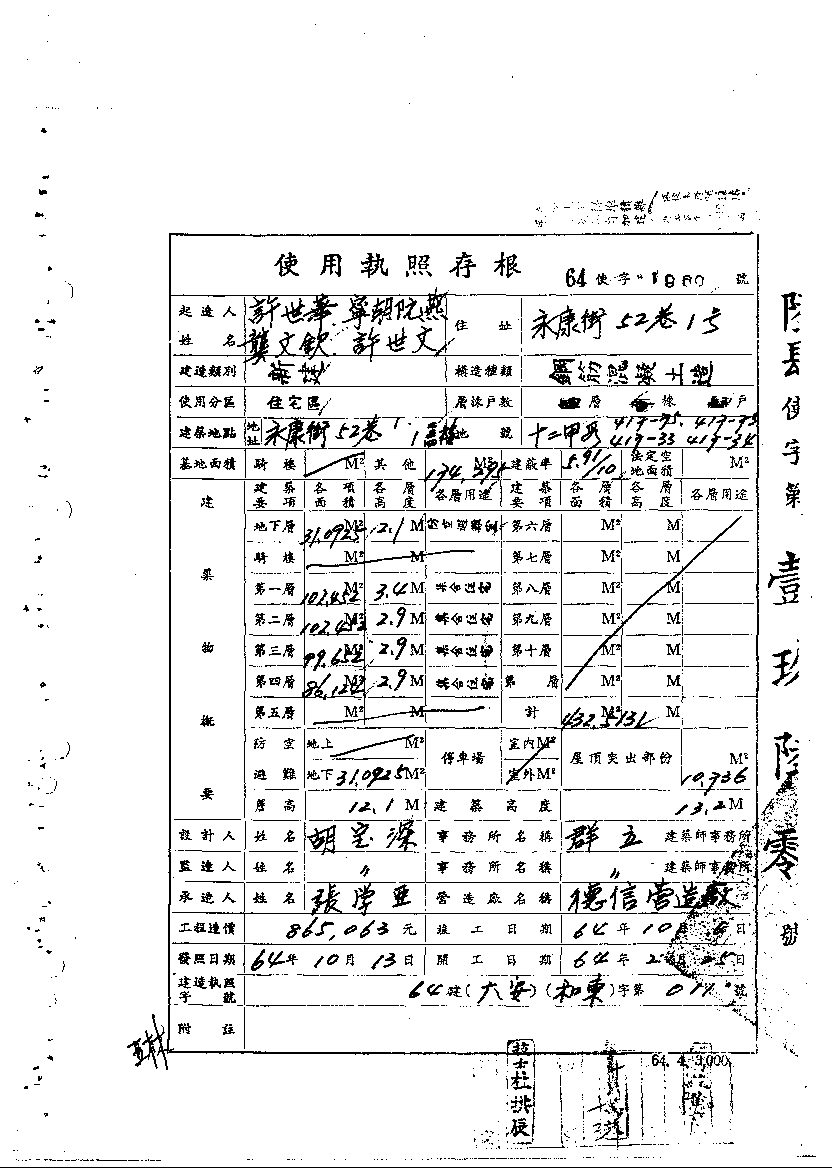 使用執照存根
64 使字第1960號
起造人姓名 許世華 寧朝阮燕 龔文欽 許世文 住址 永康街52巷1号
建造類別 新建 構造種類 鋼筋混凝土造
使用分區 住宅區 層棟戶數 層 棟 戶
建築地點 地址 永康街52巷1 地號 十二甲 417-33 417-34
基地面積 騎樓 M² 其他 M² 建蔽率 5.91/10 法定空地面積 M²
建築物概要
建築要項 各項面積 各層高度 各層用途 建築要項 各層面積 各層高度 各層用途
地下層 31.0925 M² 2.1 M 第六層 M² M
騎樓 M² M 第七層 M² M
第一層 102.452 M² 3.4 M 集合住宅 第八層 M² M
第二層 102.452 M² 2.9 M 集合住宅 第九層 M² M
第三層 99.652 M² 2.9 M 集合住宅 第十層 M² M
第四層 M² 2.9 M 集合住宅 第 層 M² M
第五層 M² M 計 M² M
防空避難 地上 M² 停車場 室內M² 屋頂突出部份 M²
地下 31.0925 M² 室外M² 10.736
簷高 12.1 M 建築高度 13.2 M
設計人 姓名 胡宝深 事務所名稱 群立 建築師事務所
監造人 姓名 〃 事務所名稱 〃 建築師事務所
承造人 姓名 張學亜 營造廠名稱 德信营造廠
工程造價 865,063 元 竣工日期 64年10月 日
發照日期 64年10月13日 開工日期 64年2月25日
建造執照字號 64建(大安)(和東)字第 號
附註
64.4.3,000
陸肆使字第壹玖陸零號